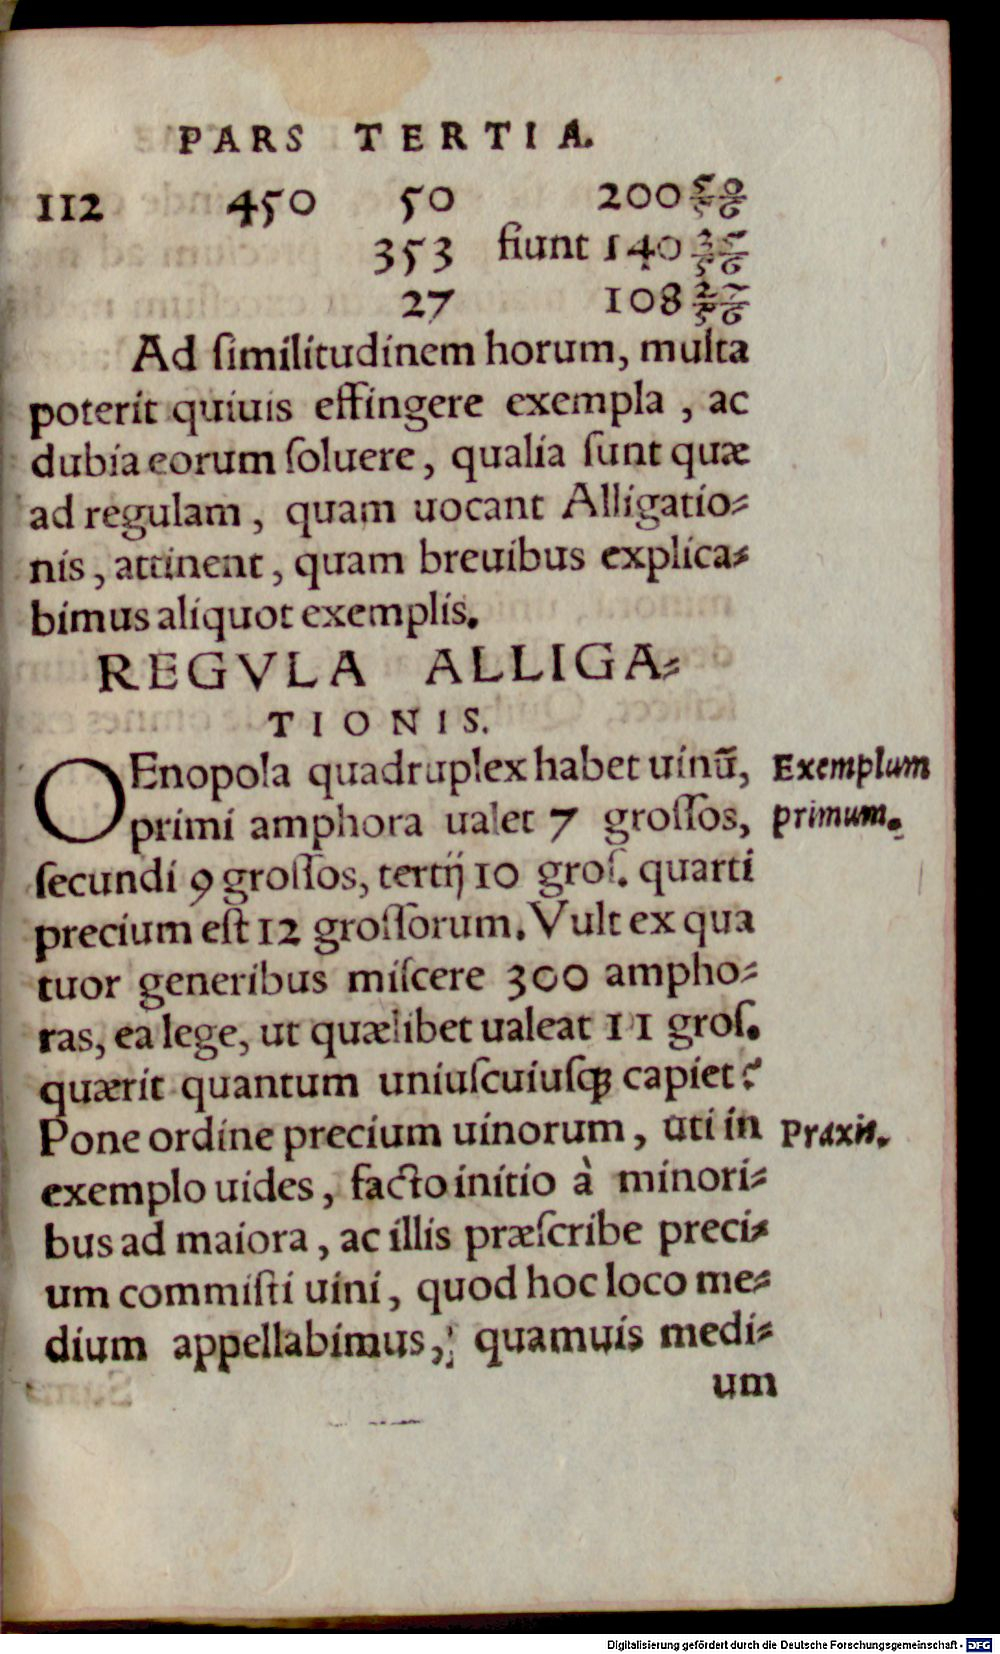 PARS TERTIA.
112 450 50 200 50/56
353 fiunt 140 35/56
27 108 27/56
Ad ſimilitudinem horum, multa
poterit quiuis effingere exempla, ac
dubia eorum ſoluere, qualia ſunt quæ
ad regulam, quam uocant Alligatio⸗
nis, attinent, quam breuibus explica⸗
bimus aliquot exemplis.
REGVLA ALLIGA⸗
TIONIS.
OEnopola quadruplex habet uinū, Exemplum
primi amphora ualet 7 groſſos, primum.
ſecundi 9 groſſos, tertij 10 groſ. quarti
precium eſt 12 groſſorum. Vult ex qua
tuor generibus miſcere 300 ampho⸗
ras, ea lege, ut quælibet ualeat 11 groſ.
quærit quantum uniuſcuiuſqꝫ capiet?
Pone ordine precium uinorum, uti in Praxis.
exemplo uides, facto initio à minori⸗
bus ad maiora, ac illis præſcribe preci⸗
um commiſti uini, quod hoc loco me⸗
dium appellabimus, quamuis medi⸗
um
Digitalisierung gefördert durch die Deutsche Forschungsgemeinschaft - DFG